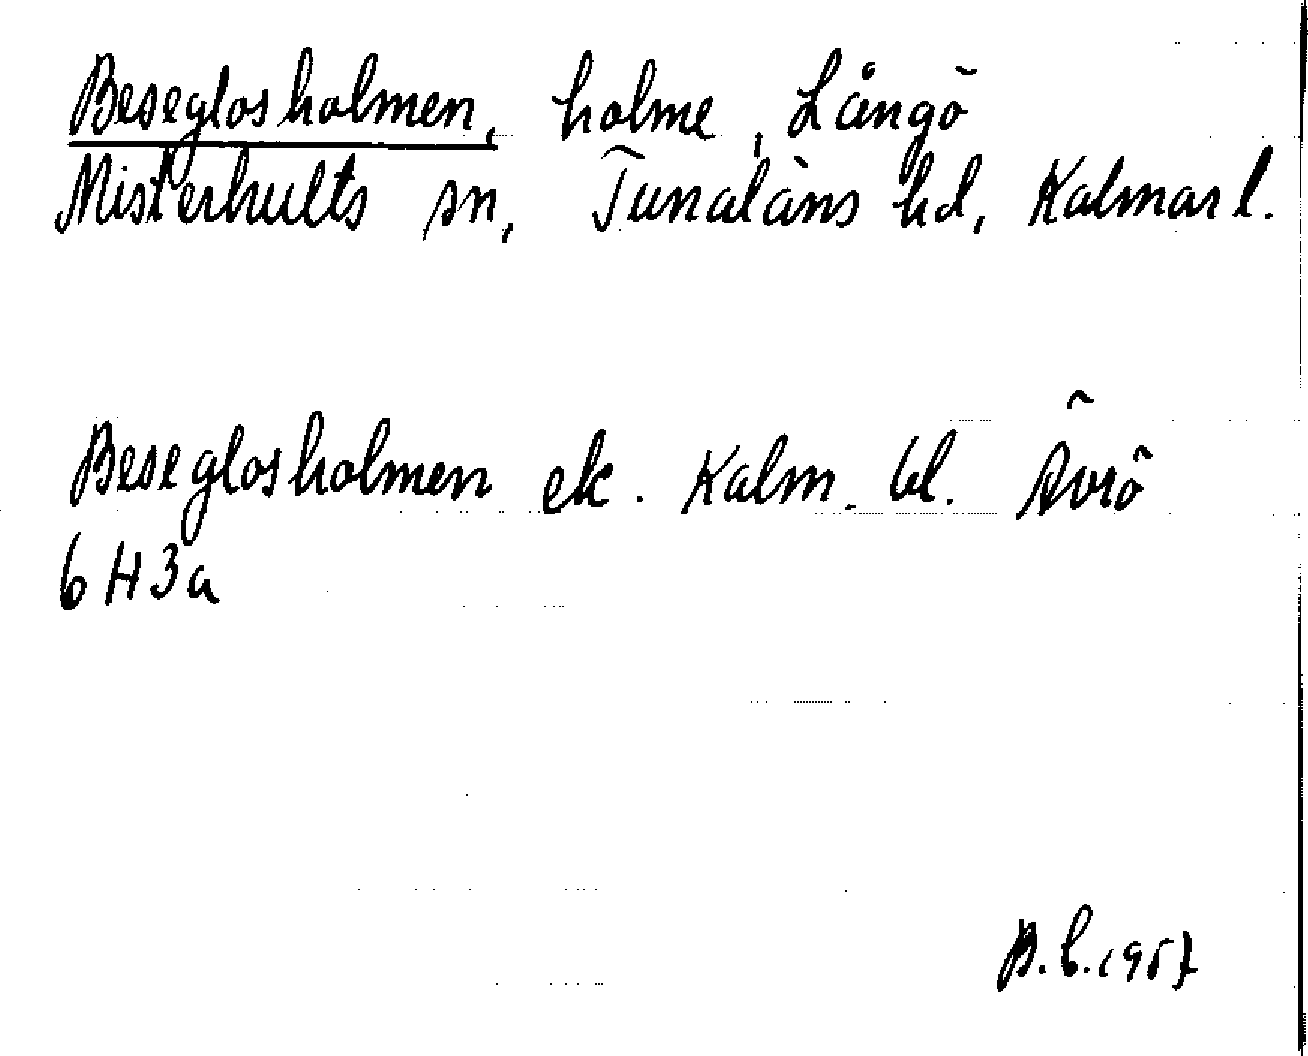 Beseglosholmen, holme, Långö
Misterhults sn, Tunaläns hd, Kalmar l.
Beseglosholmen ek. Kalm. bl. Ävrö
6H3a
B.L. 1957